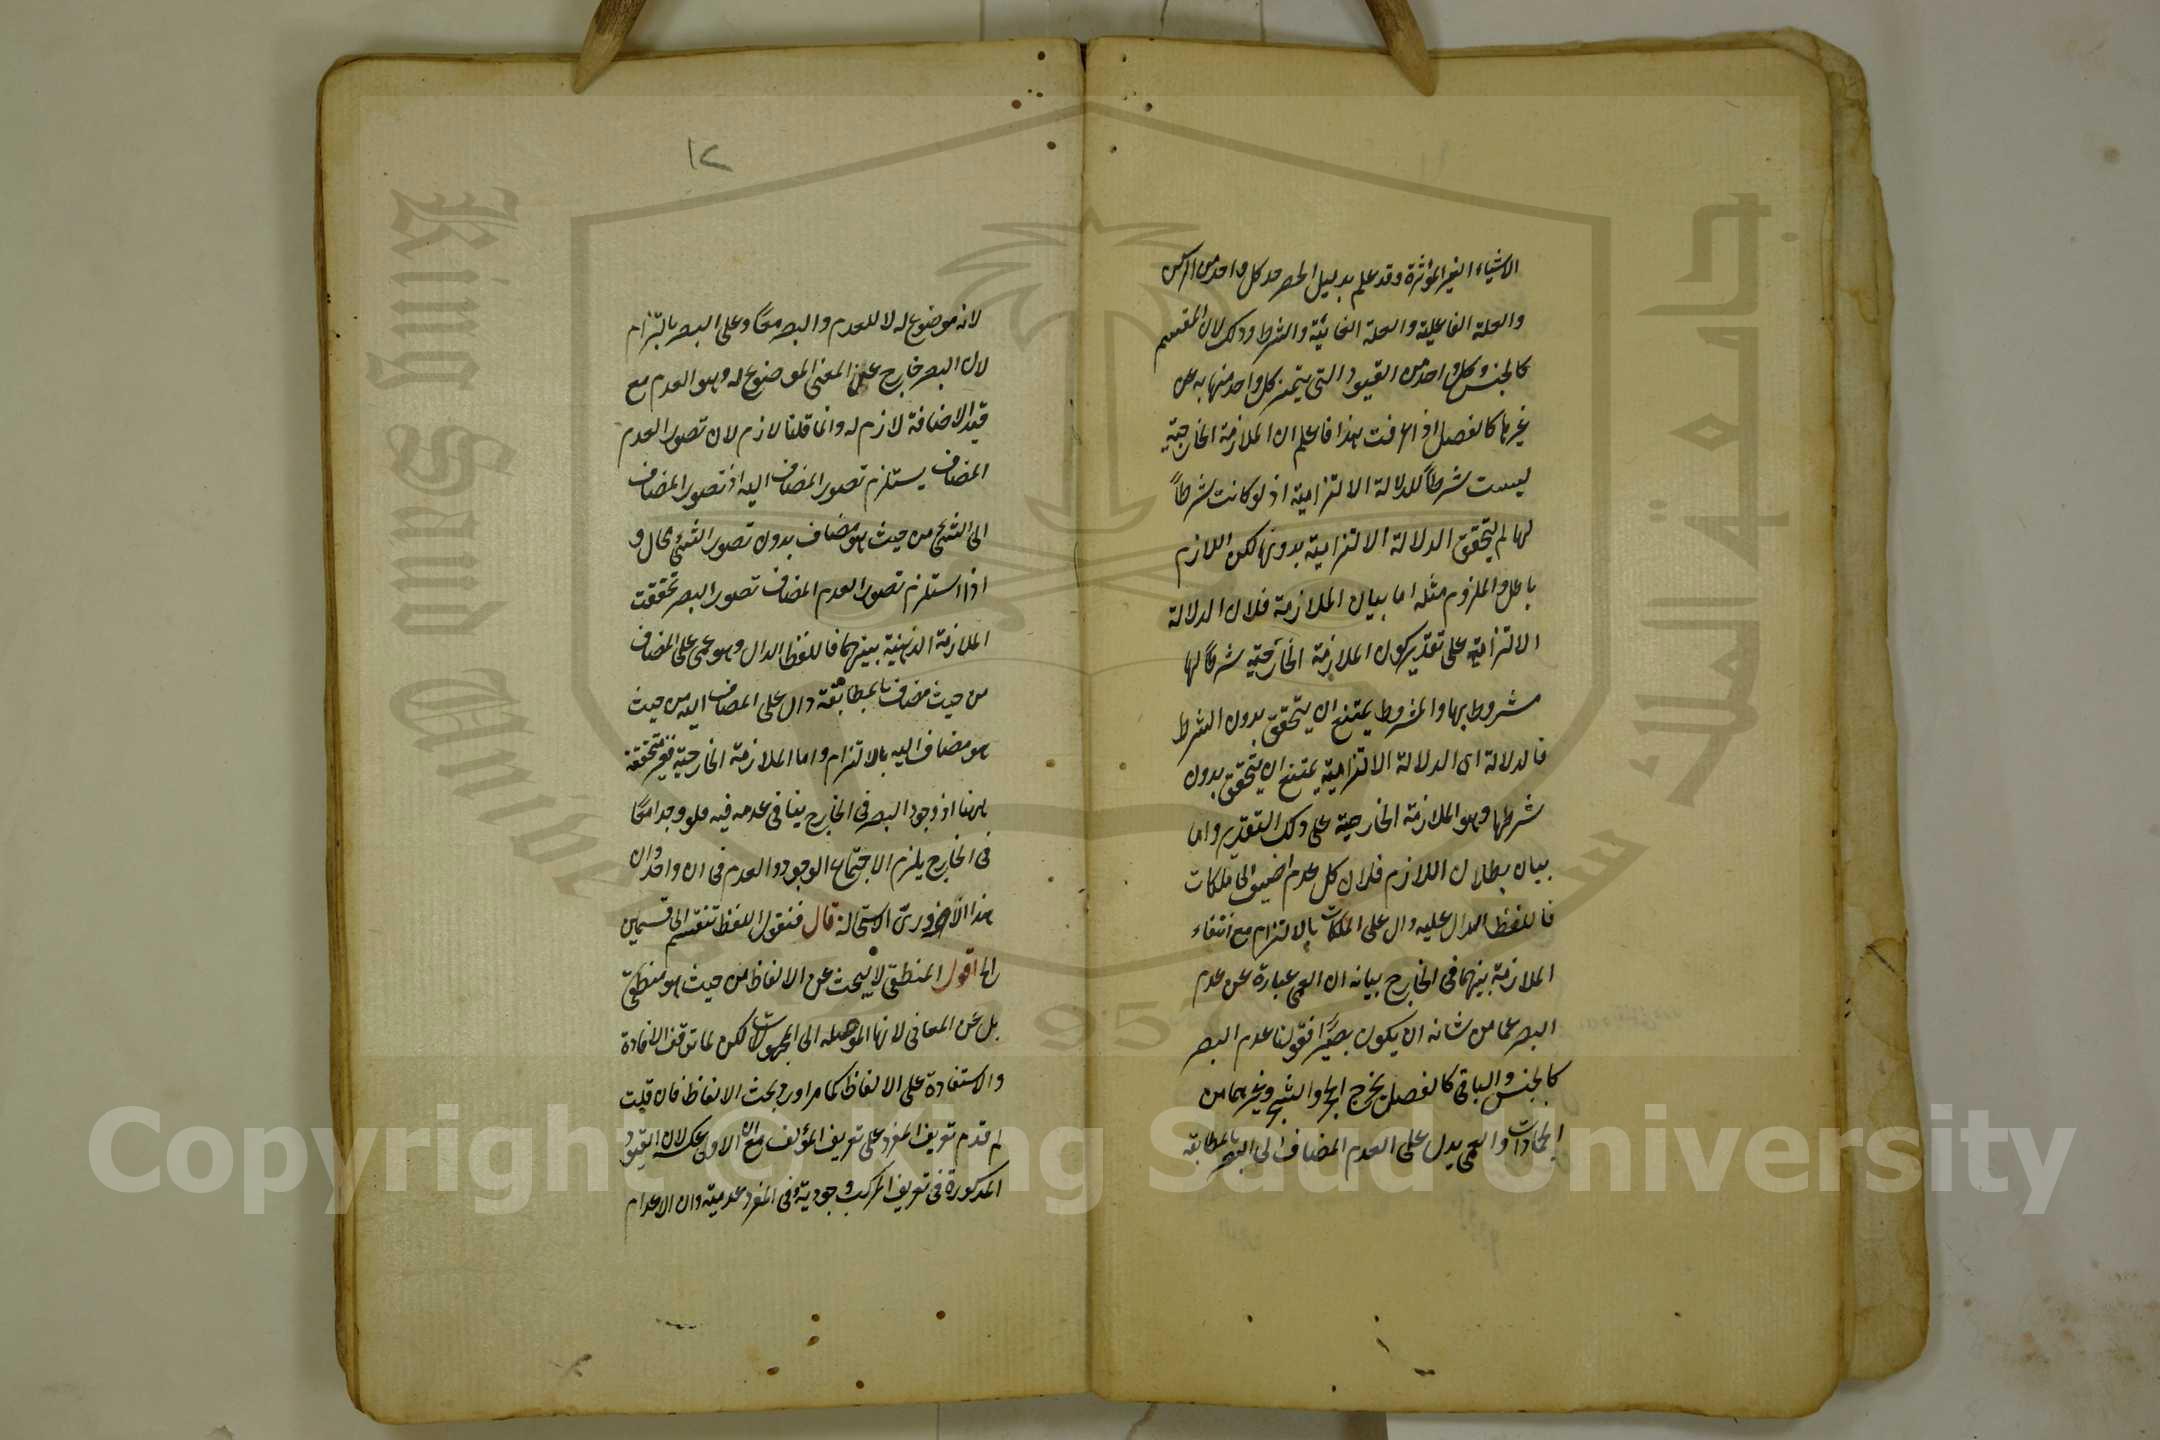 الاشياء الغير المؤثرة وقد علم بدليل الحصر حد كل واحد من الركن
والعلة الفاعلية والعلة الغائية والشرط وذلك لان المقسم
كالجنس وكل واحد من القيود التى يتميز كل واحد منها به عن
غيرها كالفصل اذا عرفت هذا فاعلم ان الملازمة الخارجية
ليست شرطاً للدلالة الالتزامية اذ لو كانت شرطاً
لها لم يتحقق الدلالة الالتزامية بدونها لكن اللازم
باطل والملزوم مثله اما بيان الملازمة فلان الدلالة
الالتزامية على تقدير كون الملازمة الخارجية شرطاً لها
مشروط بها والمشروط يمتنع ان يتحقق بدون الشرط
فالدلالة اى الدلالة الالتزامية يمتنع ان يتحقق بدون
شرطها وهو الملازمة الخارجية على ذلك التقدير واما
بيان بطلان اللازم فلان كل عدم اضيف الى ملكات
فاللفظ الدال عليه دال على الملكات بالالتزام مع انتفاء
الملازمة بينهما فى الخارج بيانه ان العمى عبارة عن عدم
البصر عما من شانه ان يكون بصيرًا فقولنا عدم البصر
كالجنس والباقى كالفصل يخرج الحجر والشجر وغيرهما من
الجمادات والعمى يدل على العدم المضاف الى البصر بالمطابقة
١٢
لانه موضوع له لا للعدم والبصر معًا وعلى البصر بالتزام
لان البصر خارج عن المعنى الموضوع له وهو العدم مع
قيد الاضافة لازم له وانما قلنا لازم لان تصور العدم
المضاف يستلزم تصور المضاف اليه اذ تصور المضاف
الى الشئ من حيث هو مضاف بدون تصور الشئ محال و
اذا استلزم تصور العدم المضاف تصور البصر تحققت
الملازمة الذهنية بينهما فاللفظ الدال وهو عمى على المضاف
من حيث مضاف بالمطابقة دال على المضاف اليه من حيث
هو مضاف اليه بالالتزام واما الملازمة الخارجية فغير متحققة
ههنا اذ وجود البصر فى الخارج ينافى عدمه فيه فلو وجدا معًا
فى الخارج يلزم الاجتماع الوجود والعدم فى ان واحد وان
هذا الا ضرورى الاستحالة قال فنقول اللفظ تنقسم الى قسمين
الها اقول المنطقى لا يبحث عن الالفاظ من حيث هو منطقى
بل عن المعانى لانها الموصله الى المجهولات لكن لما توقف الافادة
والاستفادة على الالفاظ كما مر اورد بحث الالفاظ فان قلت
لم قدم تعريف المفرد على تعريف المؤلف مع ان الاولى عكسه لان القيود
المذكورة فى تعريف المركب وجودية وفى المفرد عدمية وان الاعدام
King Saud University
جامعة الملك سعود
1957
Copyright © King Saud University